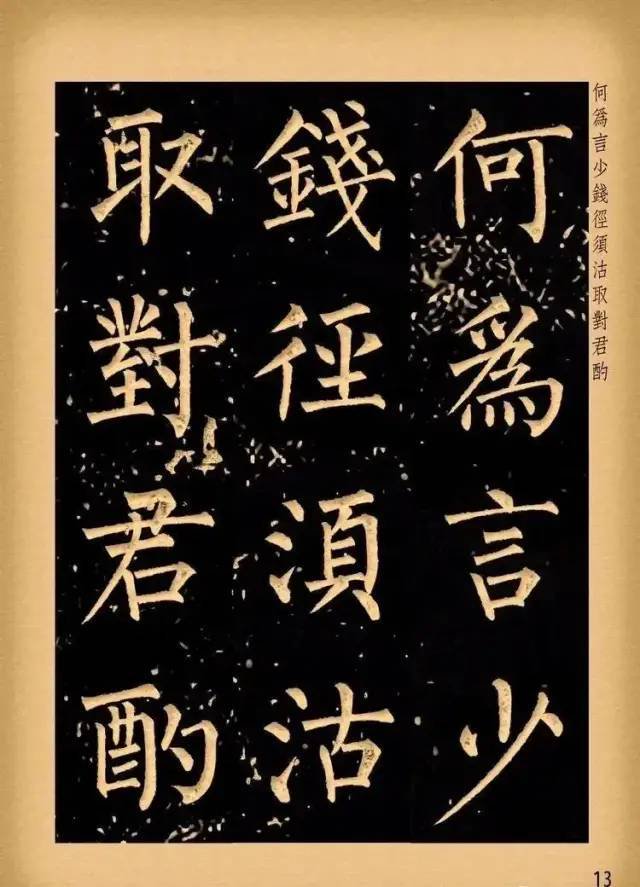 何為言少
錢徑須沽
取對君酌
何為言少錢徑須沽取對君酌
13